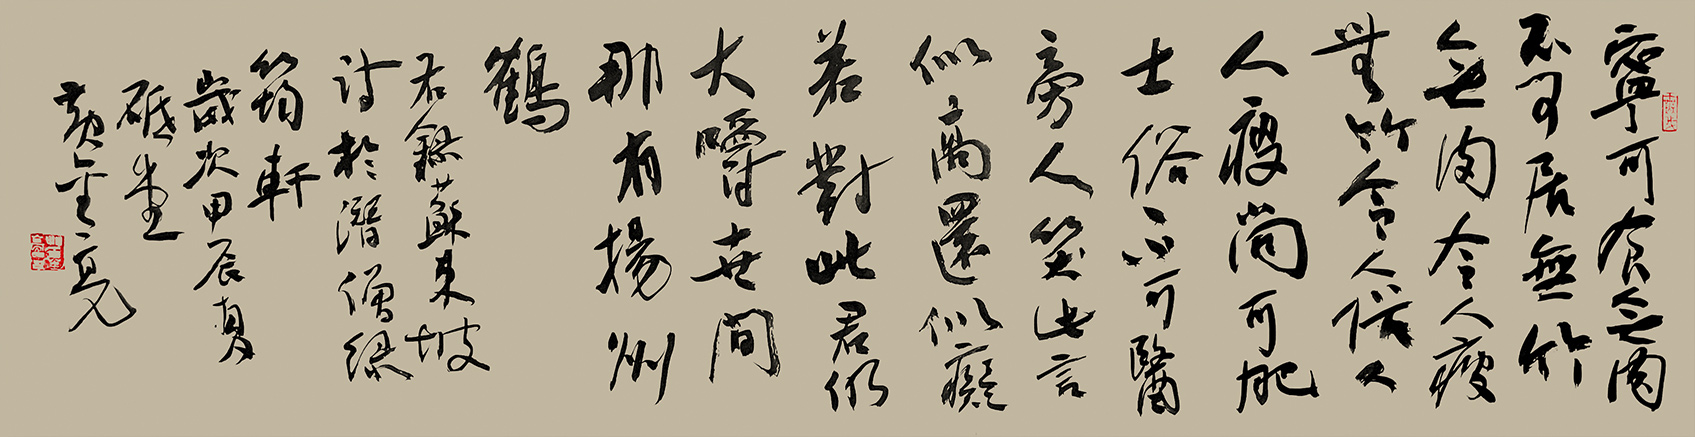 寧可食無肉
不可居無竹
無肉令人瘦
無竹令人俗人
人瘦尚可肥
士俗不可醫
旁人笑此言
似高還似癡
若對此君仍
大嚼世間
那有揚州
鶴
右錄蘇東坡
詩於潛僧綠
筠軒
歲次甲辰夏
砥堂
黃金亮